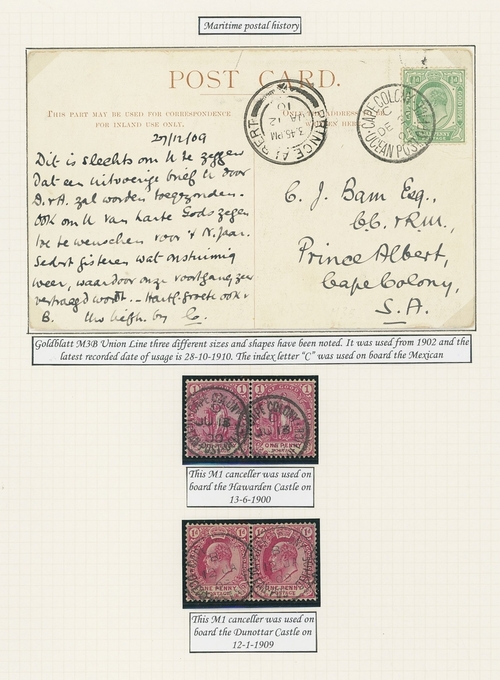 Maritime postal history
POST CARD.
THIS PART MAY BE USED FOR CORRESPONDENCE
FOR INLAND USE ONLY.
ONLY ADDRESS
HERE
27/12/09
Dit is slechts om U te zeggen
Dat een uitvoerige brief U door
D.v.A. zal worden toegezonden.
Ook om U van harte Gods zegen
toe te wenschen voor 't N. Jaar.
Sedert gisteren wat onstuimig
weer, waardoor onze voortgang zeer
vertraagd wordt. - Hartl. groete ook v
B. Uw liefh. by
C. J. Bam Esq.,
CC. & R.M.,
Prince Albert,
Cape Colony,
S. A.
PRINCE ALBERT
3.45 PM
JA 12
10
CAPE COLONY
C
DE
OCEAN POST
HALF PENNY
Goldblatt M3B Union Line three different sizes and shapes have been noted. It was used from 1902 and the
latest recorded date of usage is 28-10-1910. The index letter "C" was used on board the Mexican
1 1 1 1
CAPE COLONY
ONE PENNY ONE PENNY
This M1 canceller was used on
board the Hawarden Castle on
13-6-1900
1d 1d 1d 1d
ONE PENNY ONE PENNY
This M1 canceller was used on
board the Dunottar Castle on
12-1-1909